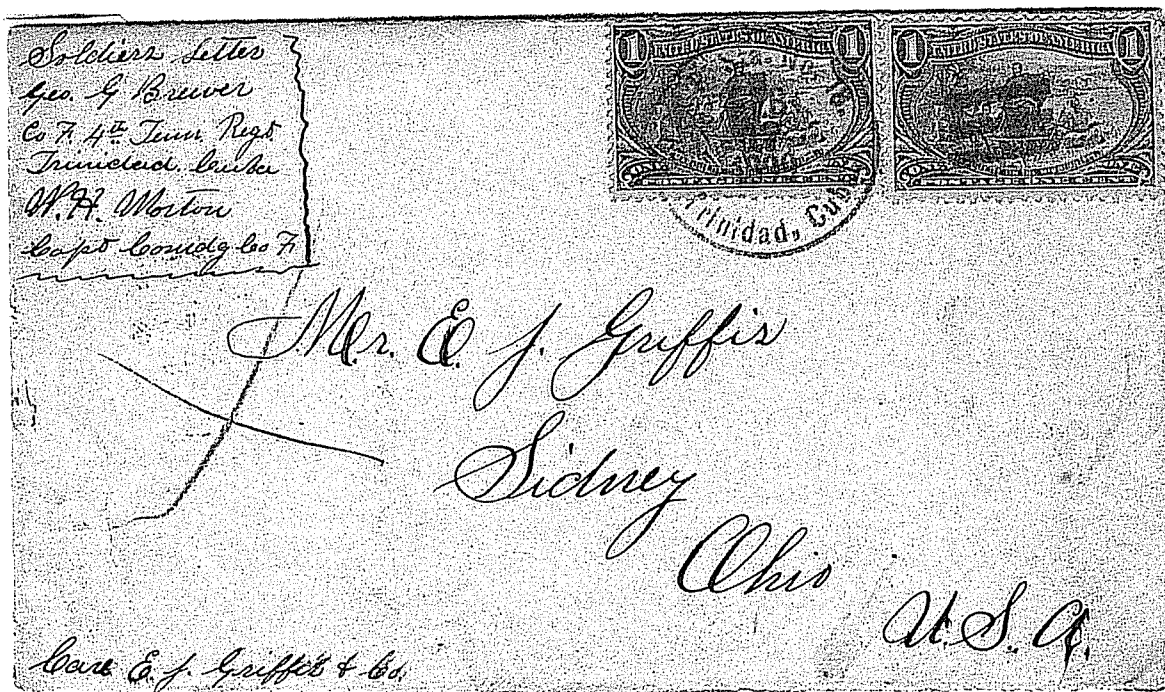 Soldiers Letter
Geo. G Brewer
Co F. 4th Tenn Regt
Trinidad. Cuba
W. H. Morton
Capt Comdg Co F
1 UNITED STATES OF AMERICA 1
1 UNITED STATES OF AMERICA 1
Trinidad, Cuba
Mr. E. J. Griffis
Sidney
Ohio
U. S. A.
Care E. J. Griffis & Co.